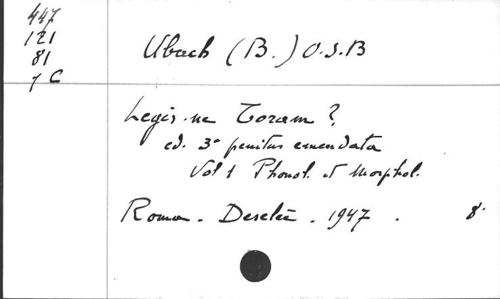 447
121
81
1 C
Ubach (B.) O.S.B
Legis-ne Toram?
ed. 3ª penitus emendata
Vol 1 Phonol. et Morphol.
Roma - Desclée - 1947 . 8.